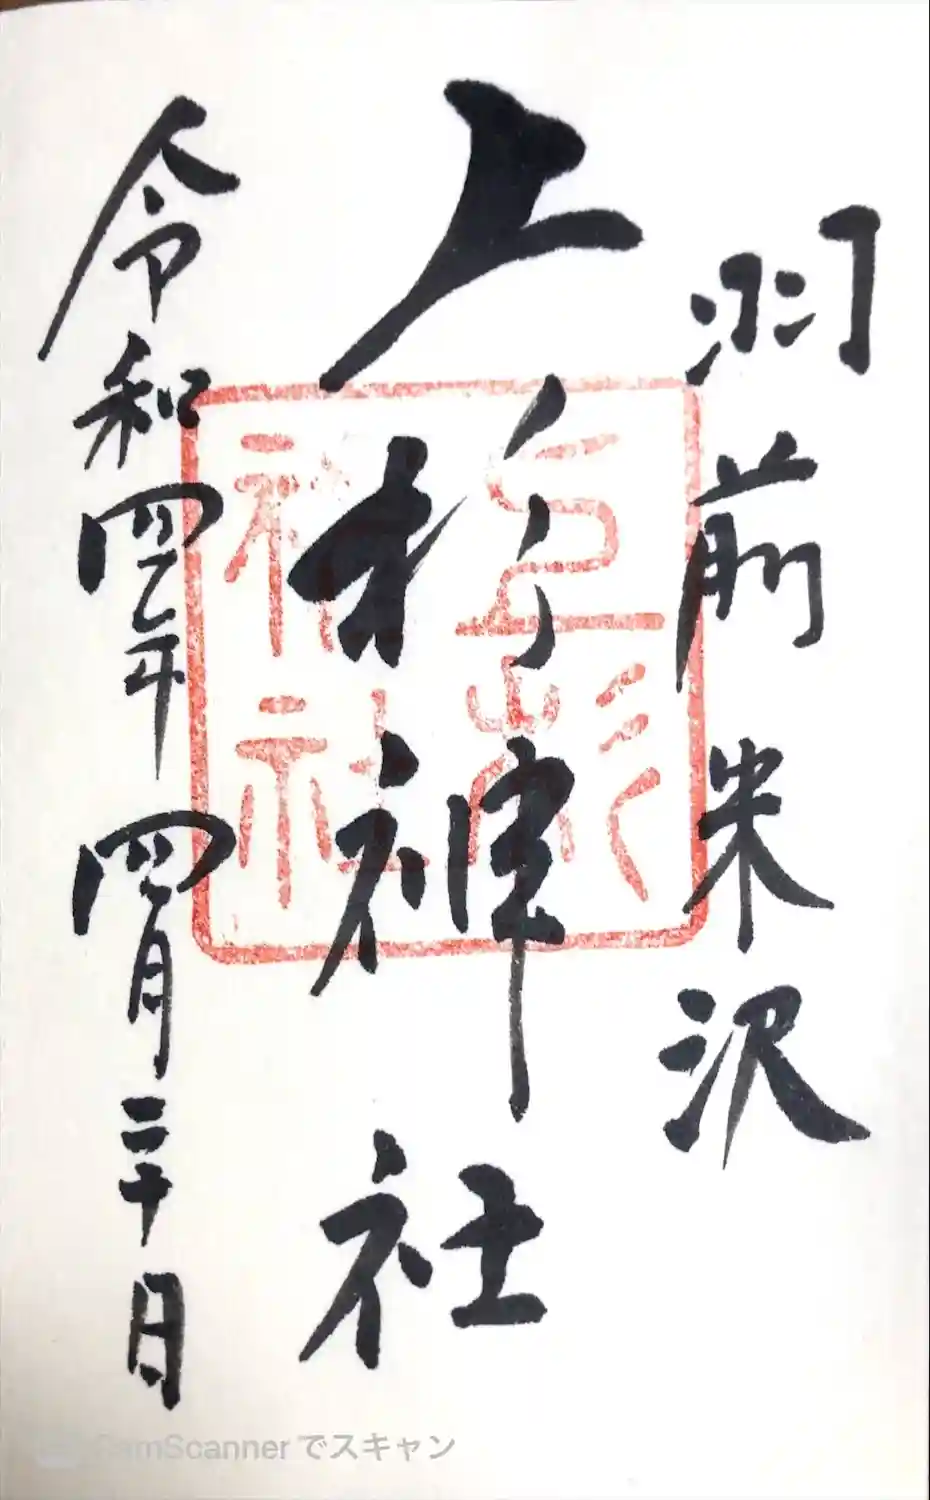 羽前米沢
上杉神社
上杉神社
令和四年四月二十日
CamScannerでスキャン